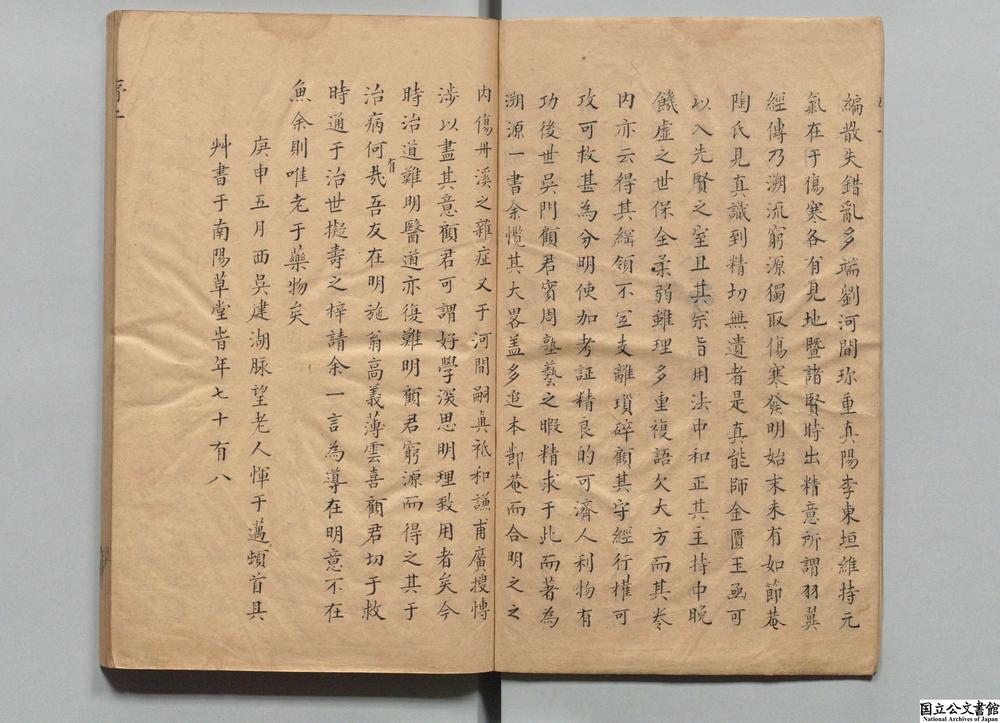 編散失錯亂多端劉河間珎重真陽李東垣維持元
氣在于傷寒各有見地暨諸賢時出精意所謂羽翼
經傳乃溯流窮源獨取傷寒發明始末未有如節菴
陶氏見真識到精切無遺者是真能師金匱玉函可
以入先賢之室且其宗旨用法中和正其主持中晚
饑虛之世保全羸弱雖理多重複語欠大方而其奏
内亦云得其綱領不至支離瑣碎顧其守經行權可
攻可救甚為分明使加考証精良的可濟人利物有
功後世吳門顧君賓周塾藝之暇精求于此而著為
溯源一書余慨其大畧盖多追本節菴而合明之之
内傷丹溪之雜症又于河間嗣真祗和謙甫廣搜愽
涉以盡其意顧君可謂好學深思明理致用者矣今
時治道難明醫道亦復難明顧君窮源而得之其于
治病何有㢤吾友在明施翁高義薄雲喜顧君切于救
時通于治世擬壽之梓請余一言為導在明意不在
魚余則唯老于藥物矣
庚申五月西吳建湖脉望老人惲于邁頓首具
艸書于南陽草堂旹年七十有八
國立公文書館
National Archives of Japan